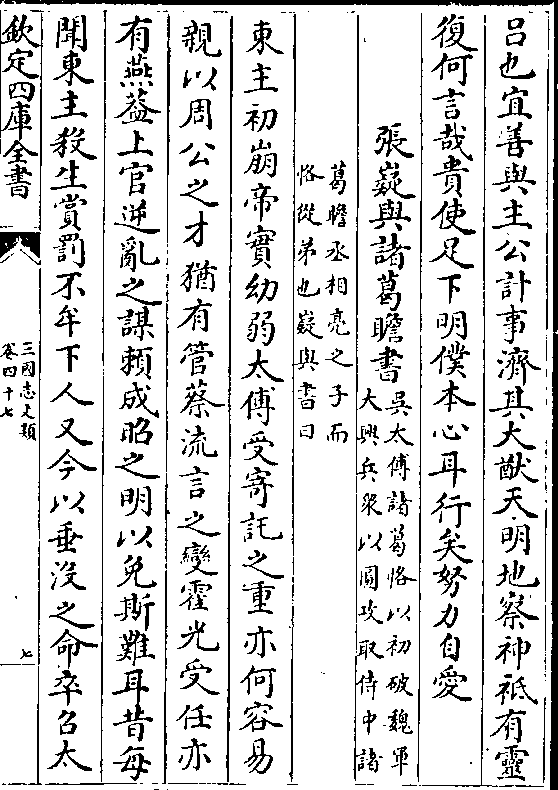 吕也宜善與主公計事濟其大猷天明地察神祗有靈
復何言哉貴使足下明僕本心耳行矣努力自愛
張嶷與諸葛瞻書
吳太傅諸葛恪以初破魏軍
大興兵衆以圖攻取侍中諸
葛瞻丞相亮之子而
恪從弟也嶷與書曰
東主初崩帝實幼弱太傅受寄託之重亦何容易
親以周公之才猶有管蔡流言之變霍光受任亦
有燕葢上官逆亂之謀頼成昭之明以免斯難耳昔每
聞東主殺生賞罰不任下人又今以垂没之命卒召太
欽定四庫全書
三國志文類
卷四十七
七